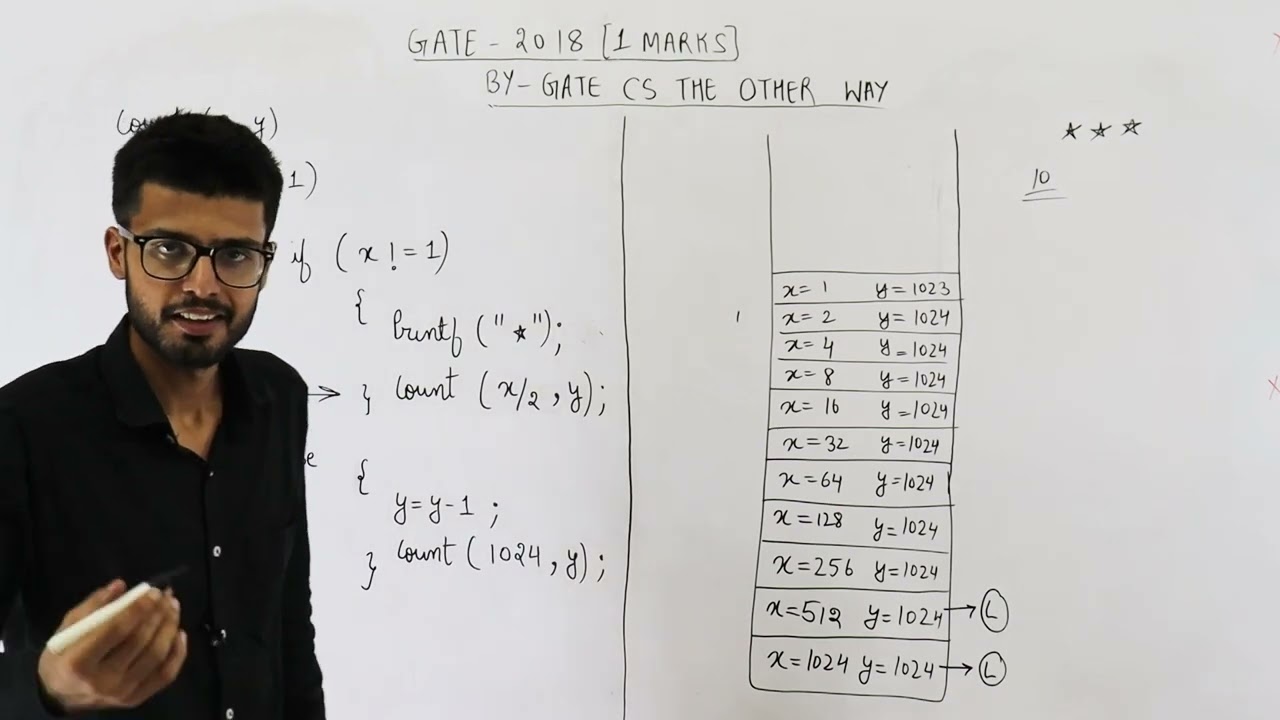 GATE - 2018 [1 MARKS]
BY- GATE CS THE OTHER WAY
y)
1)
if (x != 1)
{
printf ("★");
→ } count (x/2, y);
{
y=y-1 ;
} count (1024, y);
★ ★ ★
10
x= 1 y= 1023
x= 2 y= 1024
x= 4 y= 1024
x= 8 y= 1024
x= 16 y= 1024
x= 32 y= 1024
x= 64 y= 1024
x= 128 y= 1024
x= 256 y= 1024
x= 512 y= 1024 → L
x= 1024 y= 1024 → L